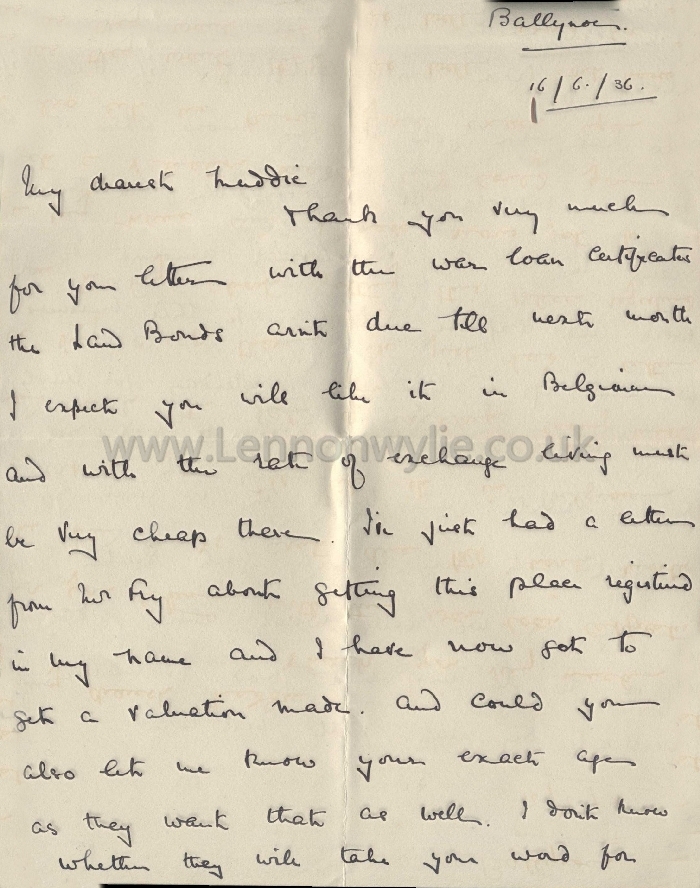 Ballynoe.
16/6./36.
My dearest Muddie
Thank you very much
for your letter with the war loan certificates
the Land Bonds arnt due till next month
I expect you will like it in Belgium
www.Lennonwylie.co.uk
and with the rate of exchange living must
be very cheap there. I've just had a letter
from Mr Fry about getting this place registered
in my name and I have now got to
get a valuation made. and could you
also let me know your exact age
as they want that as well. I don't know
whether they will take your word for